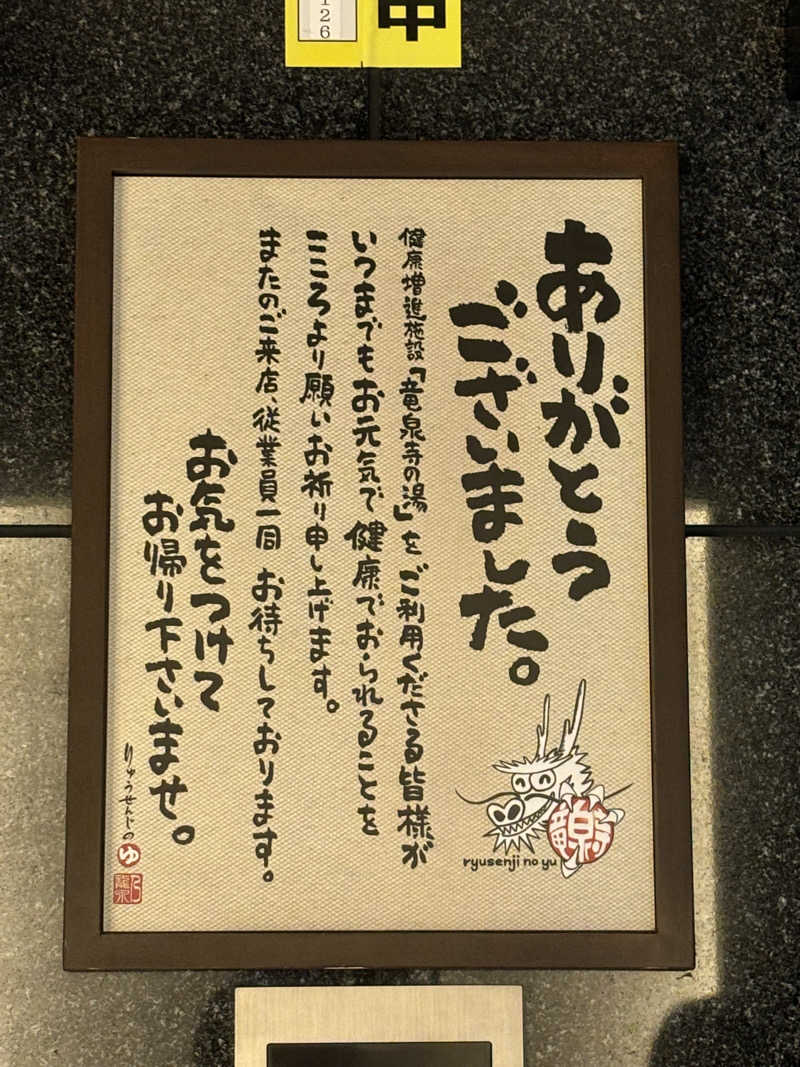 126
中
ありがとう
ございました。
健康増進施設「竜泉寺の湯」をご利用くださる皆様が
いつまでもお元気で健康でおられることを
こころより願いお祈り申し上げます。
またのご来店、従業員一同 お待ちしております。
お気をつけて
お帰り下さいませ。
りゅうせんじの
ゆ
ryusenji no yu